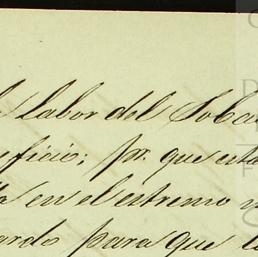 Labor del Toba
eficio; pr. que esta
ta en el estremo
ardo para que